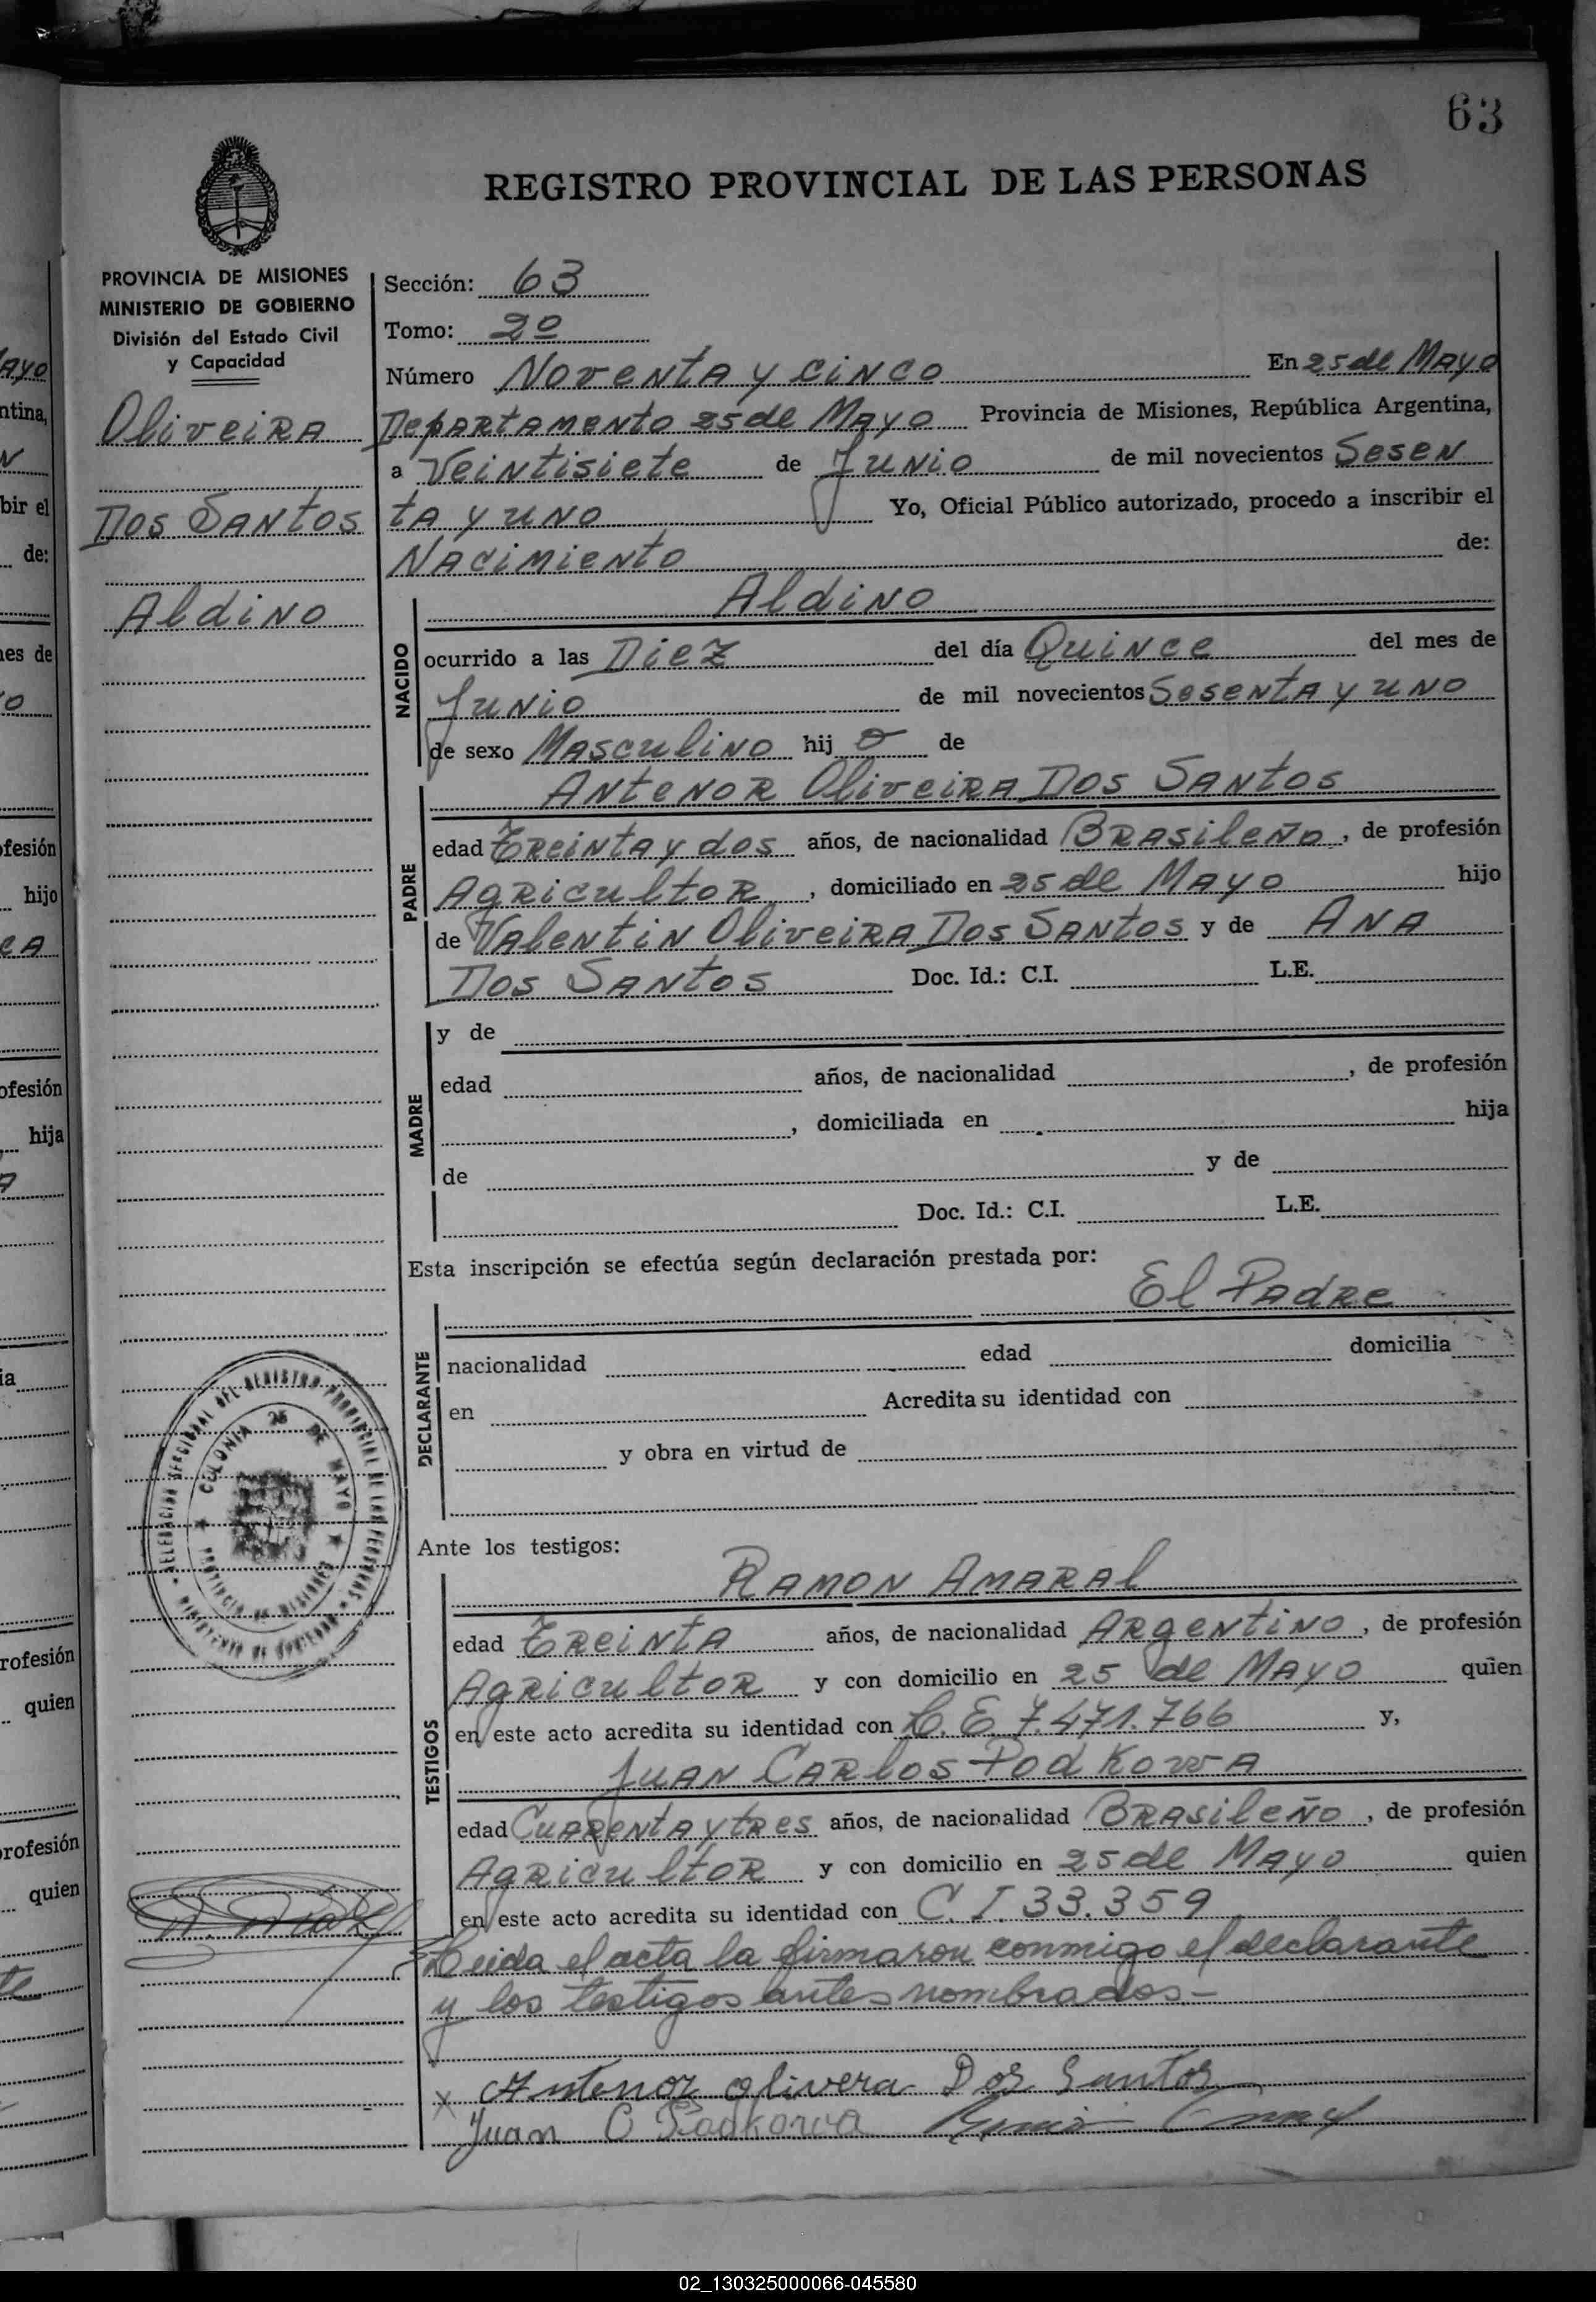 63
REGISTRO PROVINCIAL DE LAS PERSONAS
PROVINCIA DE MISIONES
MINISTERIO DE GOBIERNO
División del Estado Civil
y Capacidad
Oliveira
Dos Santos
Aldino
Sección: 63
Tomo: 2º
Número Noventa y cinco En 25 de Mayo
Departamento 25 de Mayo Provincia de Misiones, República Argentina,
a Veintisiete de Junio de mil novecientos Sesen
ta y uno Yo, Oficial Público autorizado, procedo a inscribir el
Nacimiento de:
NACIDO
Aldino
ocurrido a las Diez del día Quince del mes de
Junio de mil novecientos Sesenta y uno
de sexo Masculino hij o de
PADRE
Antenor Oliveira Dos Santos
edad Treinta y dos años, de nacionalidad Brasileño, de profesión
Agricultor, domiciliado en 25 de Mayo hijo
de Valentin Oliveira Dos Santos y de Ana
Dos Santos Doc. Id.: C.I. L.E.
MADRE
y de
edad años, de nacionalidad , de profesión
, domiciliada en hija
de y de
Doc. Id.: C.I. L.E.
Esta inscripción se efectúa según declaración prestada por:
El Padre
DECLARANTE
nacionalidad edad domicilia
en Acredita su identidad con
y obra en virtud de
Ante los testigos:
TESTIGOS
Ramon Amaral
edad Treinta años, de nacionalidad Argentino, de profesión
Agricultor y con domicilio en 25 de Mayo quien
en este acto acredita su identidad con L.E. 7.471.766 y,
Juan Carlos Podkowa
edad Cuarenta y tres años, de nacionalidad Brasileño, de profesión
Agricultor y con domicilio en 25 de Mayo quien
en este acto acredita su identidad con C.I. 33.359
Leida el acta la firmaron conmigo el declarante
y los testigos antes nombrados-
x Antenor olivera Dos Santos
Juan C Podkowa
DELEGACION SECCIONAL DEL REGISTRO PROVINCIAL DE LAS PERSONAS
MINISTERIO DE GOBIERNO
COLONIA 25 DE MAYO
PROVINCIA DE MISIONES
02_130325000066-045580